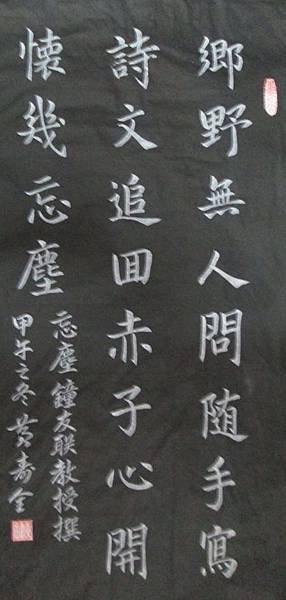 鄉野無人問随手寫
詩文追回赤子心開
懷幾忘塵
忘塵鐘友联教授撰
甲午之冬黄壽全